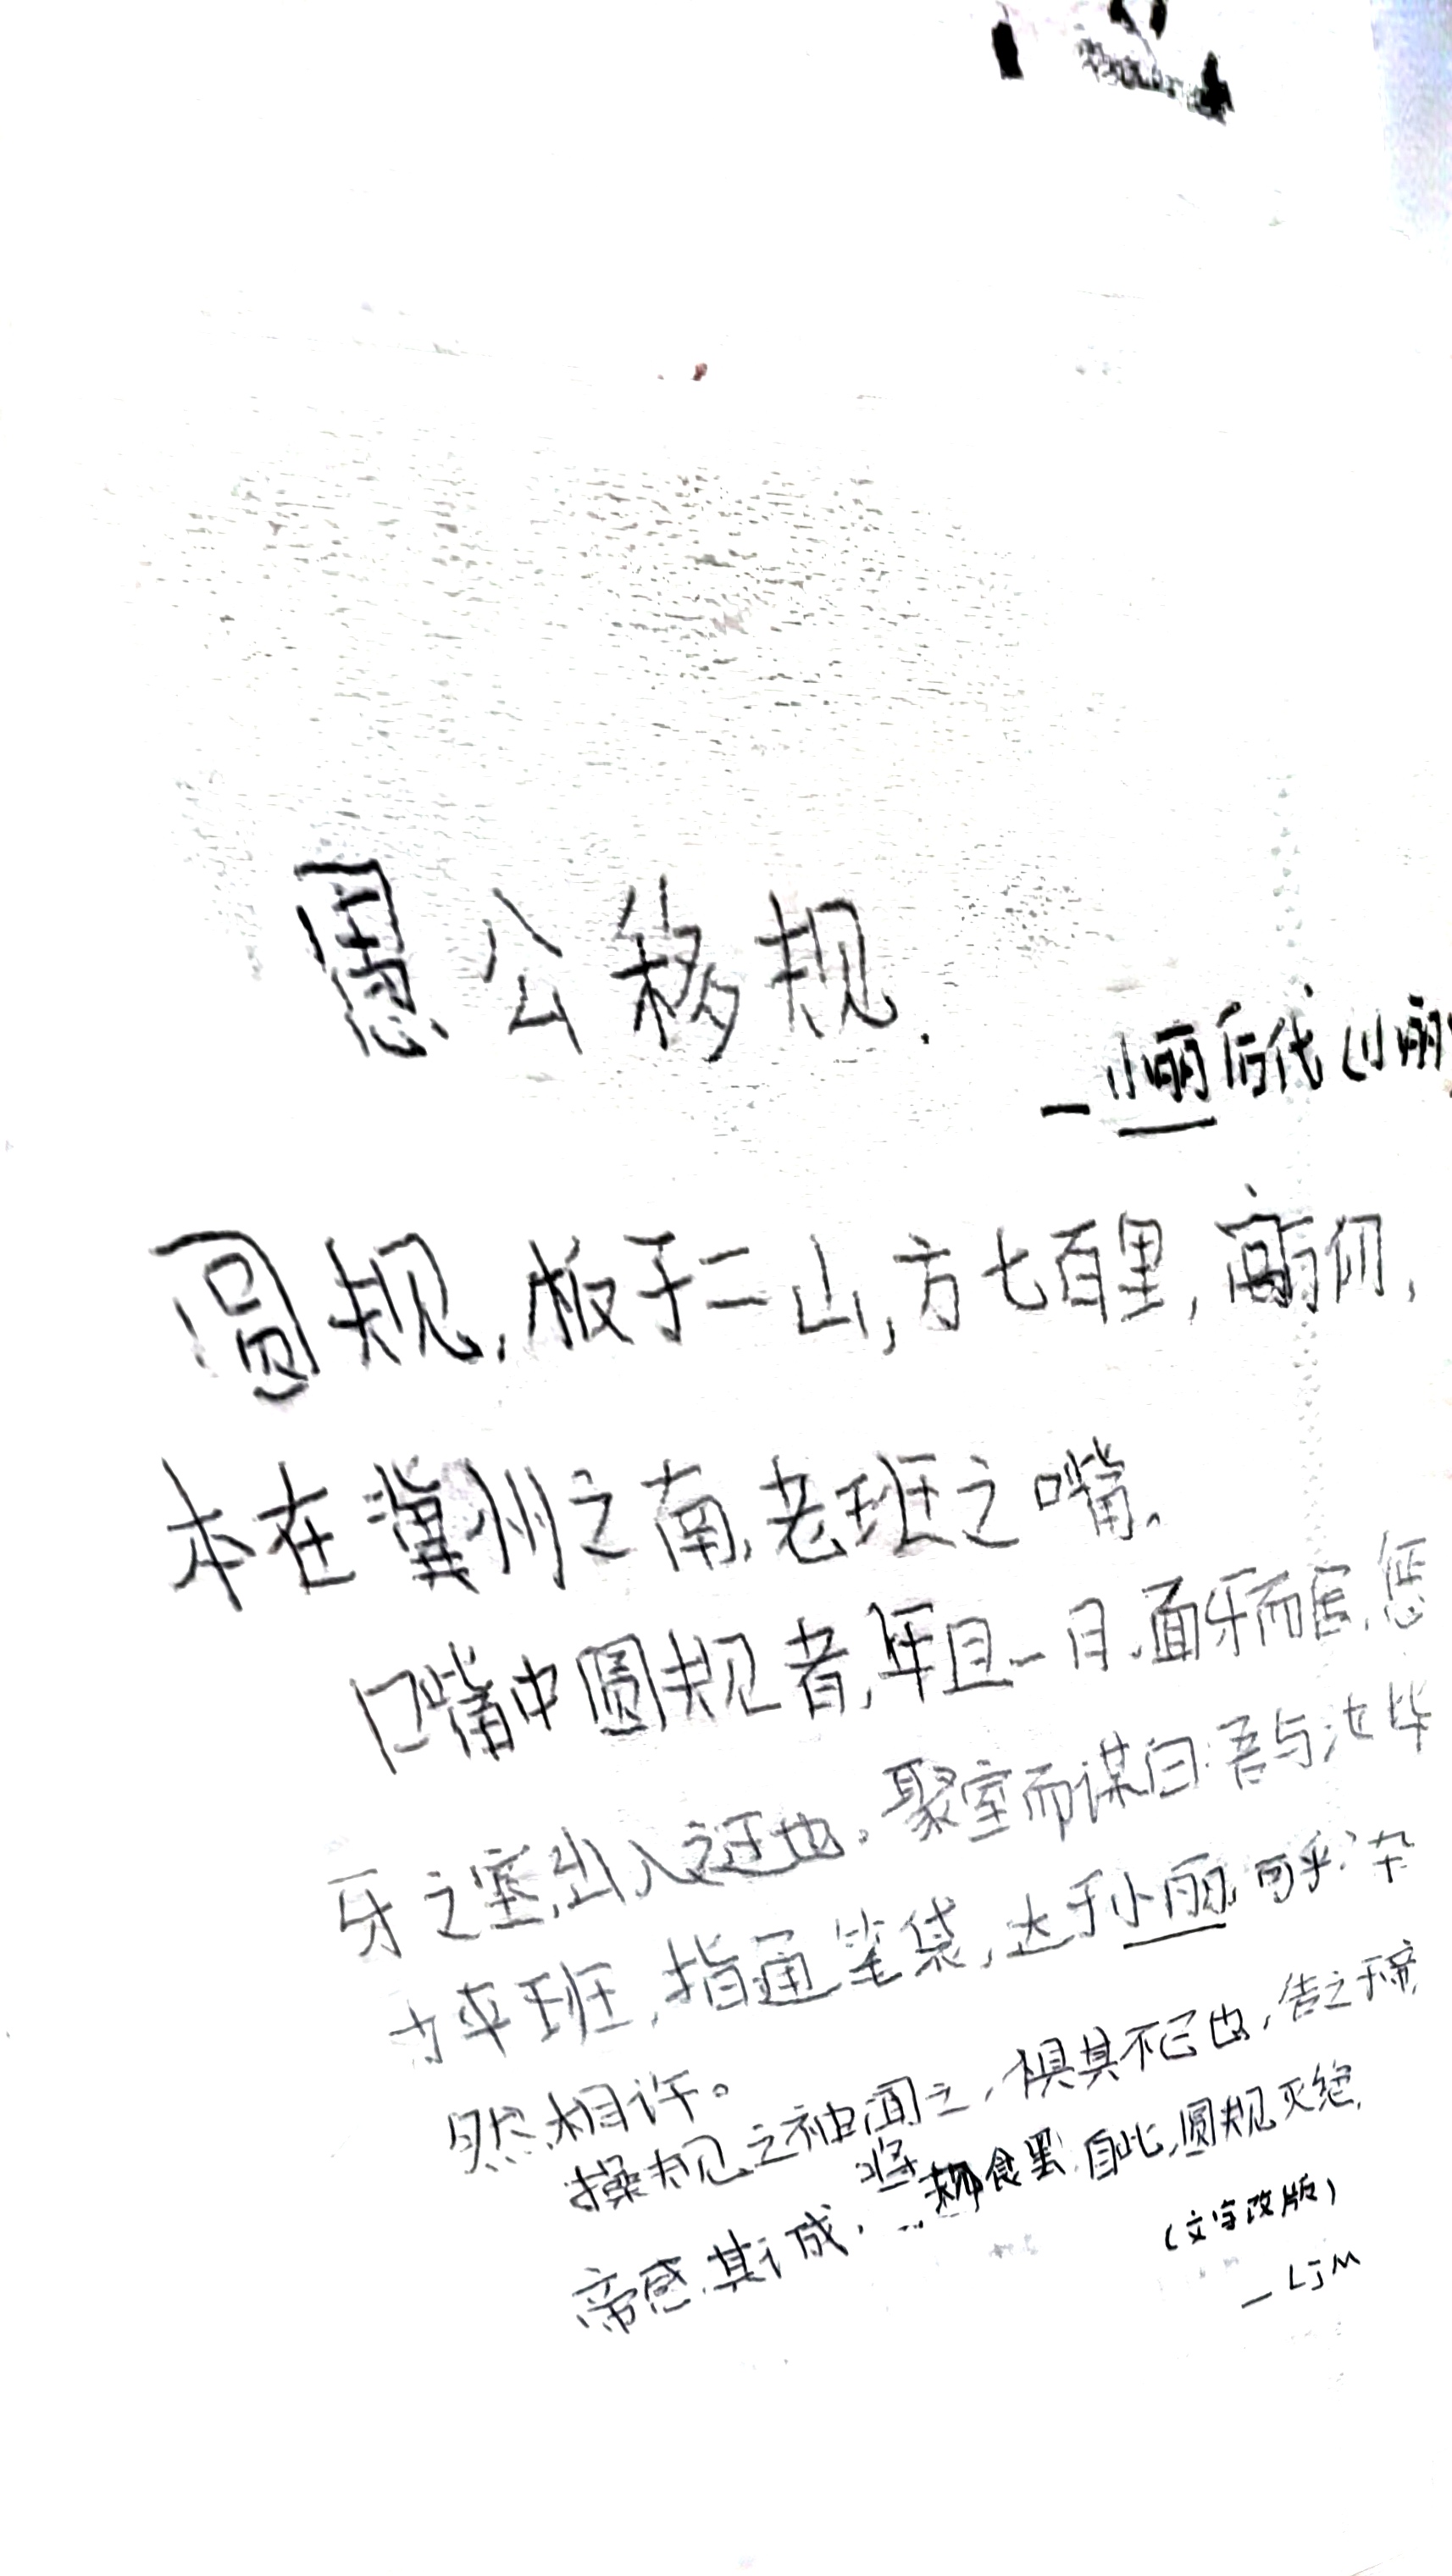 愚公移规.
—小丽后代(小丽
圆规,板于二山,方七百里,高仞,
本在冀州之南,老班之嘴.
口嘴中圆规者,年且一月.面牙而居.惩
牙之塞,出入之迂也。聚室而谋曰:吾与汝毕
力平班,指通笔袋,达于小丽,可乎?杂
然相许。
操规之神闻之,惧其不已也,告之于帝,
帝感其诚,...将食罢.自此,圆规灭绝.
(文字改版)
—LJM